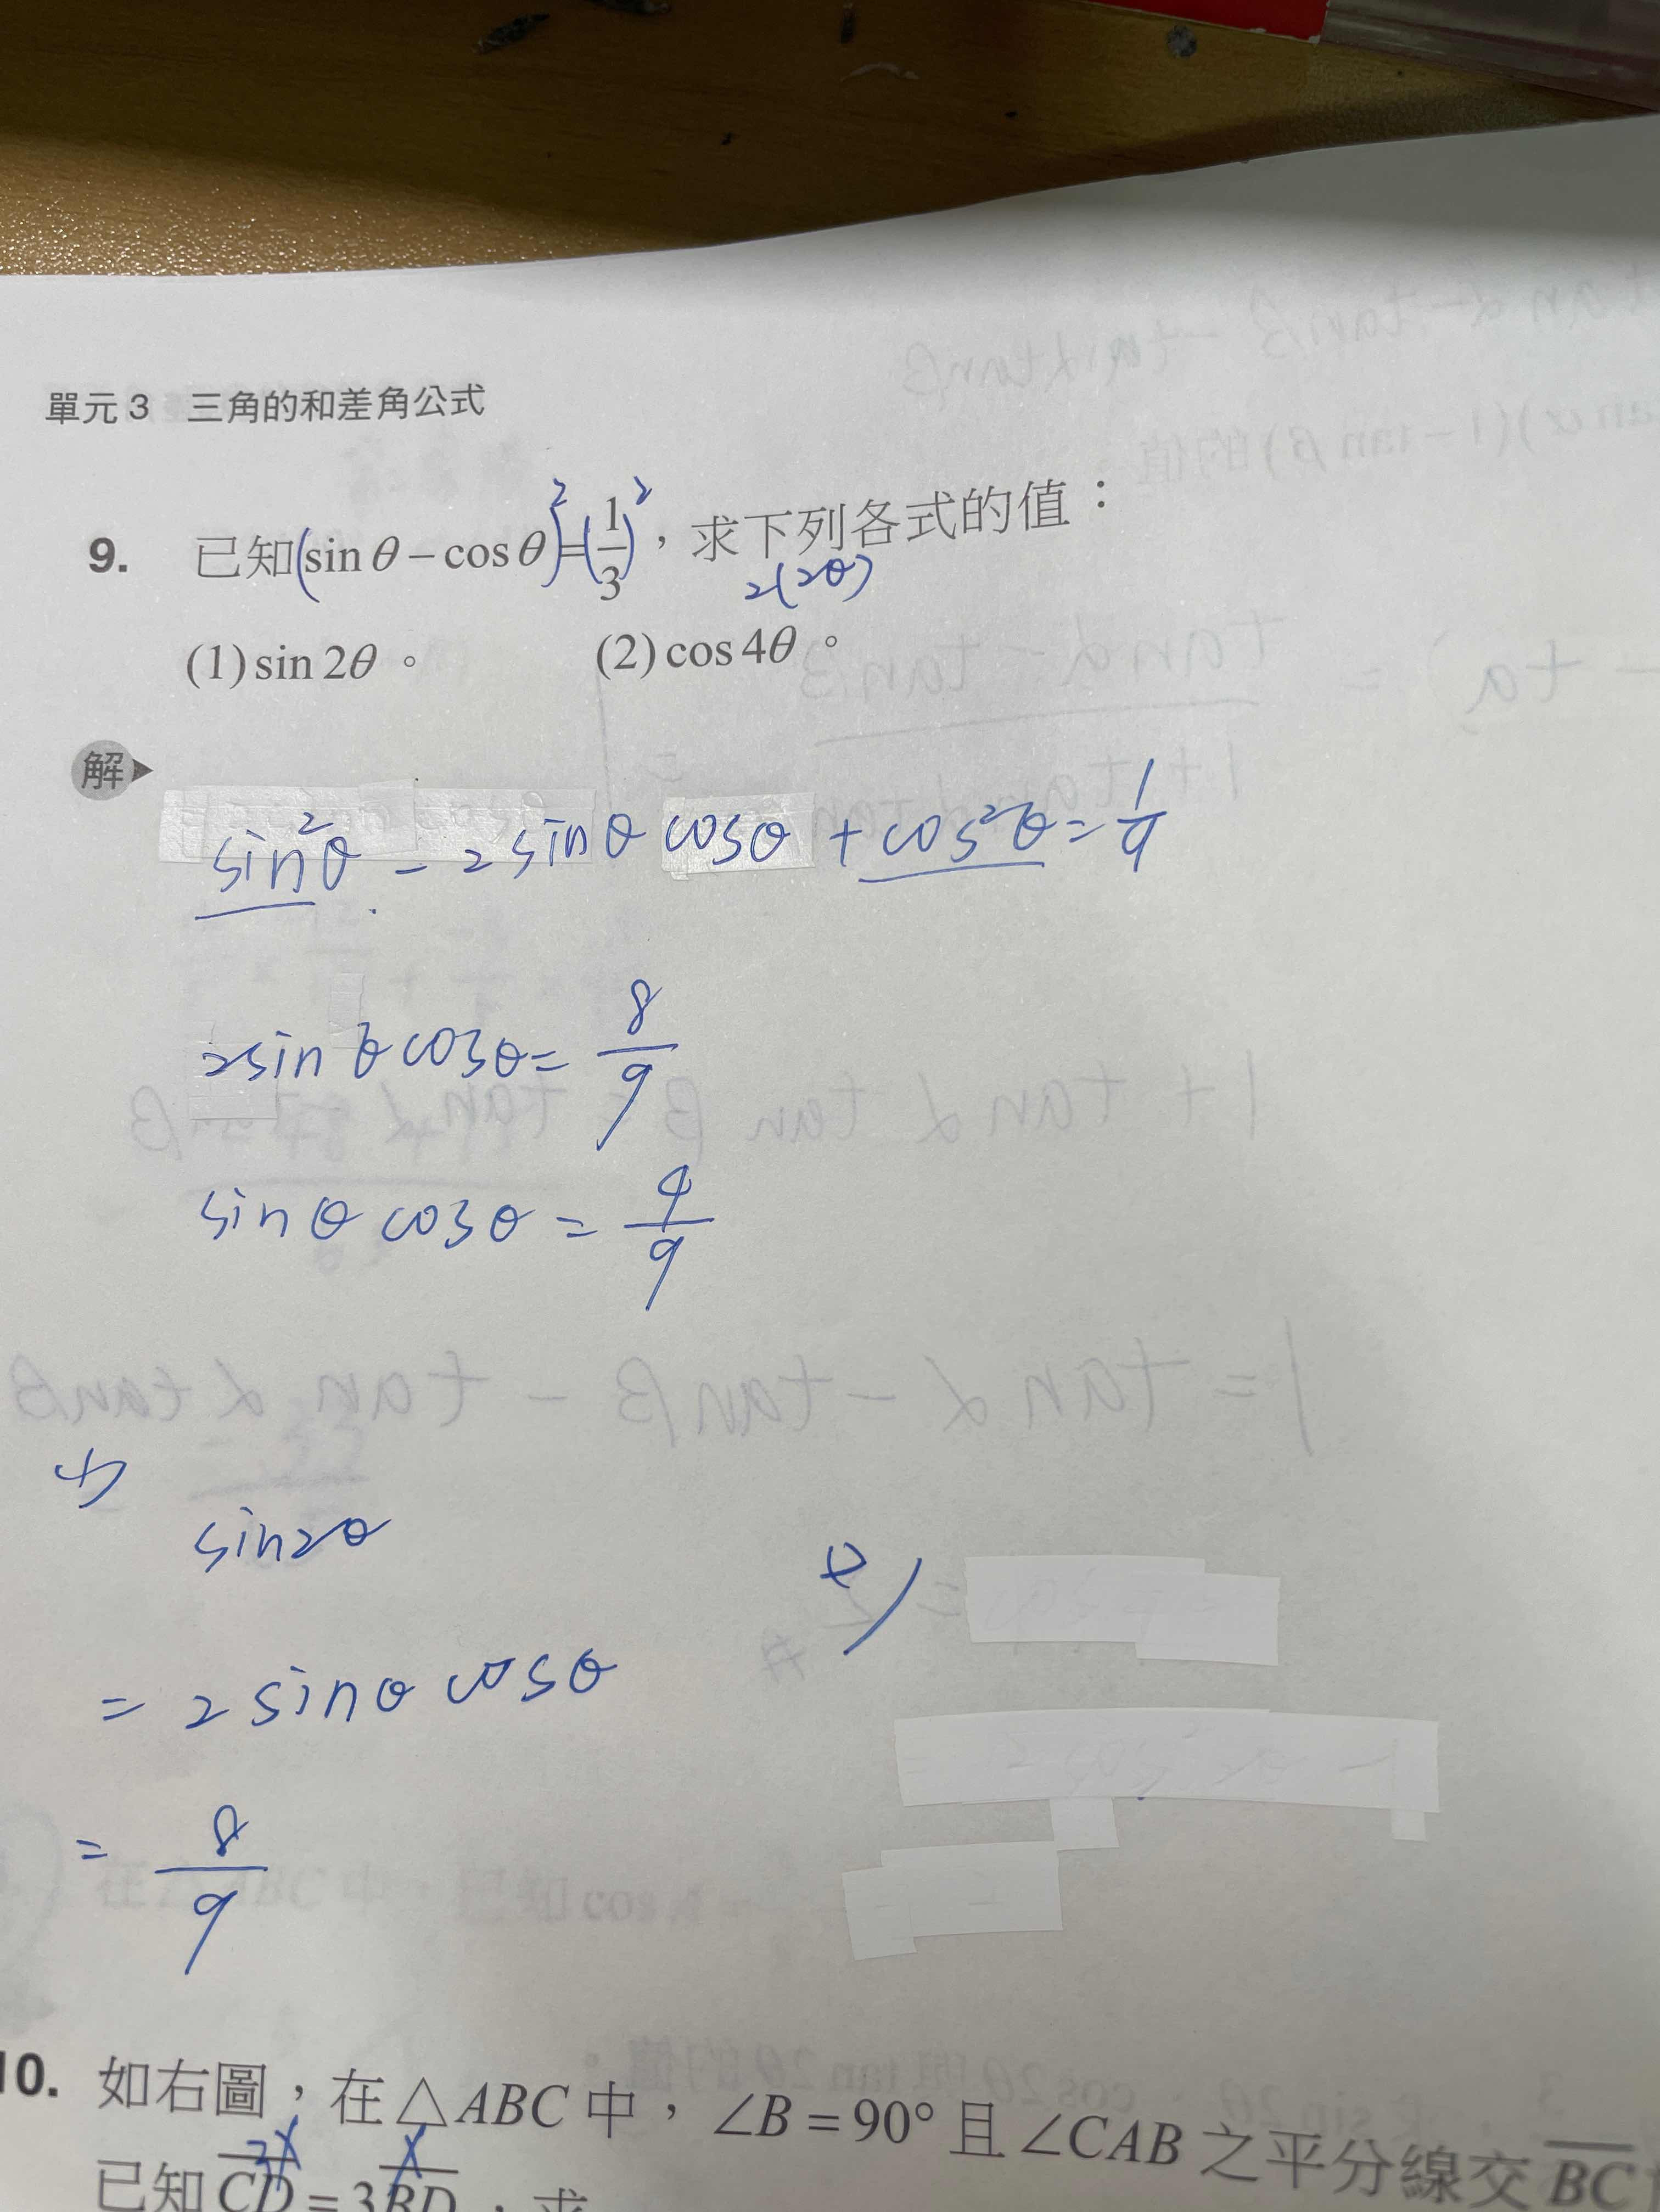 單元 3 三角的和差角公式
9. 已知(sin θ − cos θ)²=(1/3)²，求下列各式的值：
2(2θ)
(1) sin 2θ 。 (2) cos 4θ 。
解
sin²θ − 2 sin θ cos θ + cos²θ = 1/9
2sin θ cos θ = 8/9
sin θ cos θ = 4/9
sin2θ
= 2 sin θ cos θ
= 8/9
10. 如右圖，在△ABC 中，∠B = 90° 且 ∠CAB 之平分線交 BC
3x x
已知 CD = 3BD，求